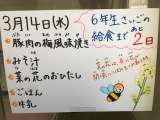 3月14日(水)
豚肉の梅風味焼き
みそ汁
菜の花のおひたし
ごはん
牛乳
6年生さいごの
給食まで
あと
2日